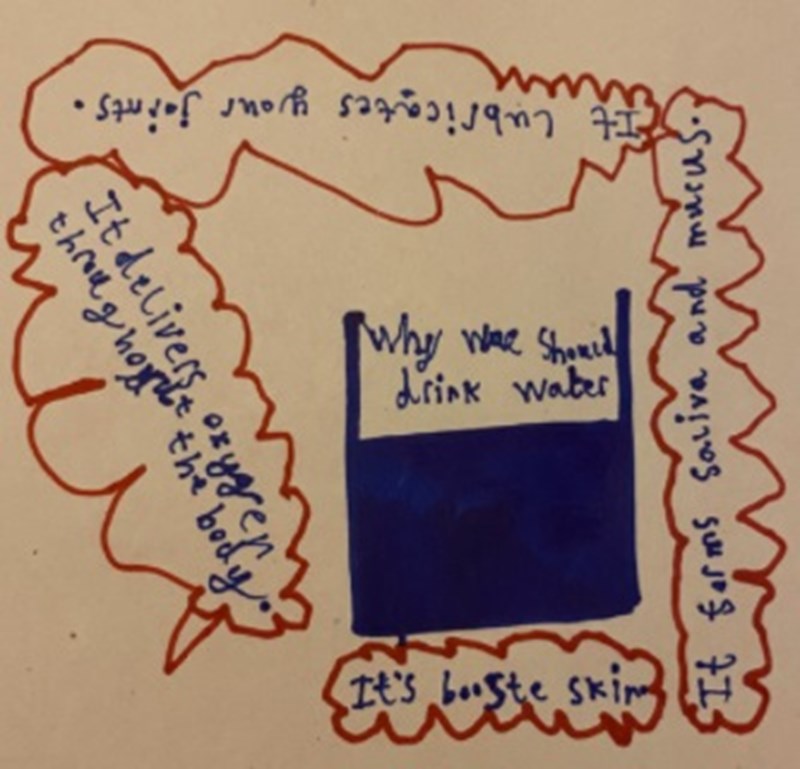 It Lubricates your joints.
It delivers oxygen
throughout the body.
Why wae should
drink water
It forms Saliva and mucus.
It's booste skin